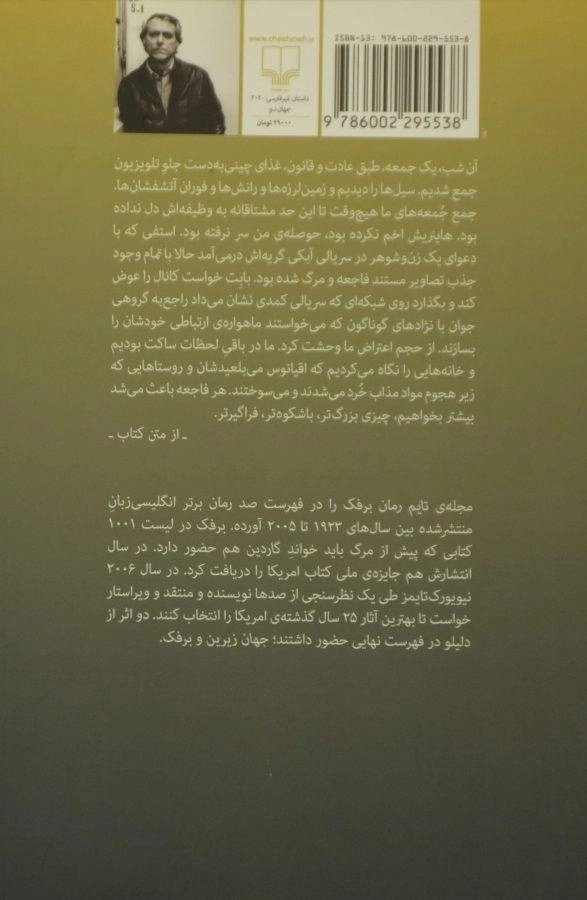 S.A
www.cheshmeh.ir
داستان غیرفارسی ۲۰۲۰
جهان‌نو
۲۹۰۰۰ تومان
ISBN-13: 978-600-229-553-8
9 786002 295538
آن شب، یک جمعه، طبق عادت و قانون، غذای چینی‌به‌دست جلوِ تلویزیون
جمع شدیم. سیل‌ها را دیدیم و زمین‌لرزه‌ها و رانش‌ها و فوران آتشفشان‌ها.
جمع جُمعه‌های ما هیچ‌وقت تا این حد مشتاقانه به وظیفه‌اش دل نداده
بود. هاینریش اخم نکرده بود، حوصله‌ی من سر نرفته بود. استفی که با
دعوای یک زن‌وشوهر در سریالی آبکی گریه‌اش درمی‌آمد حالا با تمام وجود
جذب تصاویر مستند فاجعه و مرگ شده بود. بابِت خواست کانال را عوض
کند و بگذارد روی شبکه‌ای که سریالی کمدی نشان می‌داد راجع‌به گروهی
جوان با نژادهای گوناگون که می‌خواستند ماهواره‌ی ارتباطی خودشان را
بسازند. از حجم اعتراض ما وحشت کرد. ما در باقیِ لحظات ساکت بودیم
و خانه‌هایی را نگاه می‌کردیم که اقیانوس می‌بلعیدشان و روستاهایی که
زیر هجوم مواد مذاب خُرد می‌شدند و می‌سوختند. هر فاجعه باعث می‌شد
بیشتر بخواهیم، چیزی بزرگ‌تر، باشکوه‌تر، فراگیرتر.
ـ از متن کتاب ـ
مجله‌ی تایم رمان برفک را در فهرست صد رمان برتر انگلیسی‌زبانِ
منتشرشده بین سال‌های ۱۹۲۳ تا ۲۰۰۵ آورده. برفک در لیست ۱۰۰۱
کتابی که پیش از مرگ باید خواندِ گاردین هم حضور دارد. در سال
انتشارش هم جایزه‌ی ملی کتاب امریکا را دریافت کرد. در سال ۲۰۰۶
نیویورک‌تایمز طی یک نظرسنجی از صدها نویسنده و منتقد و ویراستار
خواست تا بهترین آثار ۲۵ سال گذشته‌ی امریکا را انتخاب کنند. دو اثر از
دلیلو در فهرست نهایی حضور داشتند؛ جهان زیرین و برفک.